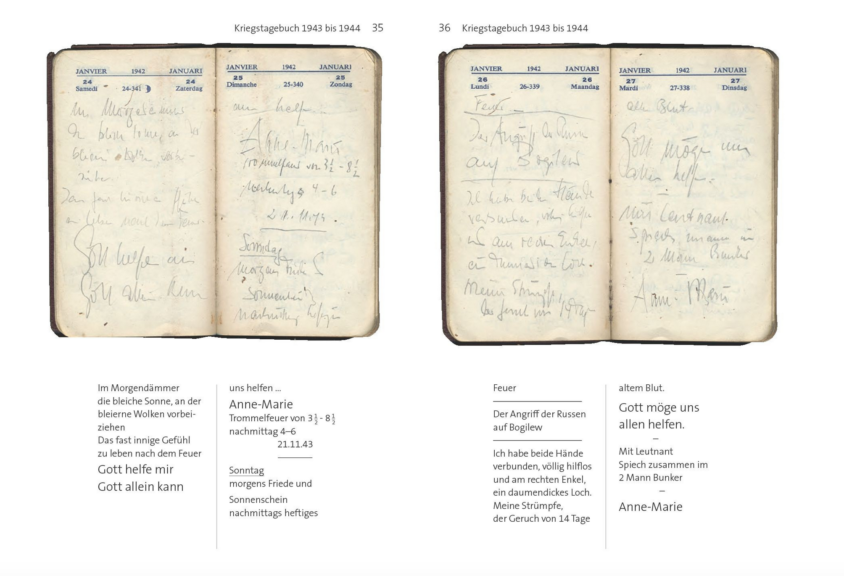 Kriegstagebuch 1943 bis 1944 35
JANVIER 1942 JANUARI
24 24
Samedi 24-341 Zaterdag
Gott helfe mir
Gott allein kann
JANVIER 1942 JANUARI
25 25
Dimanche 25-340 Zondag
uns helfen
Anne-Marie
Trommelfeuer von 3½ - 8½
nachmittag 4-6
21.11.43.
Sonntag
morgens Friede
Sonnenschein
nachmittag heftiges
Im Morgendämmer
die bleiche Sonne, an der
bleierne Wolken vorbei-
ziehen
Das fast innige Gefühl
zu leben nach dem Feuer
Gott helfe mir
Gott allein kann
uns helfen ...
Anne-Marie
Trommelfeuer von 3½ - 8½
nachmittag 4–6
21.11.43
Sonntag
morgens Friede und
Sonnenschein
nachmittags heftiges
36 Kriegstagebuch 1943 bis 1944
JANVIER 1942 JANUARI
26 26
Lundi 26-339 Maandag
Feuer
Der Angriff der Russen
auf Bogilew
Ich habe beide Hände
verbunden, völlig hilflos
und am rechten Enkel,
ein daumendickes Loch.
Meine Strümpfe,
der Geruch von 14 Tage
JANVIER 1942 JANUARI
27 27
Mardi 27-338 Dinsdag
altem Blut.
Gott möge uns
allen helfen.
Mit Leutnant
Spiech zusammen im
2 Mann Bunker
Anne-Marie
Feuer
Der Angriff der Russen
auf Bogilew
Ich habe beide Hände
verbunden, völlig hilflos
und am rechten Enkel,
ein daumendickes Loch.
Meine Strümpfe,
der Geruch von 14 Tage
altem Blut.
Gott möge uns
allen helfen.
–
Mit Leutnant
Spiech zusammen im
2 Mann Bunker
–
Anne-Marie